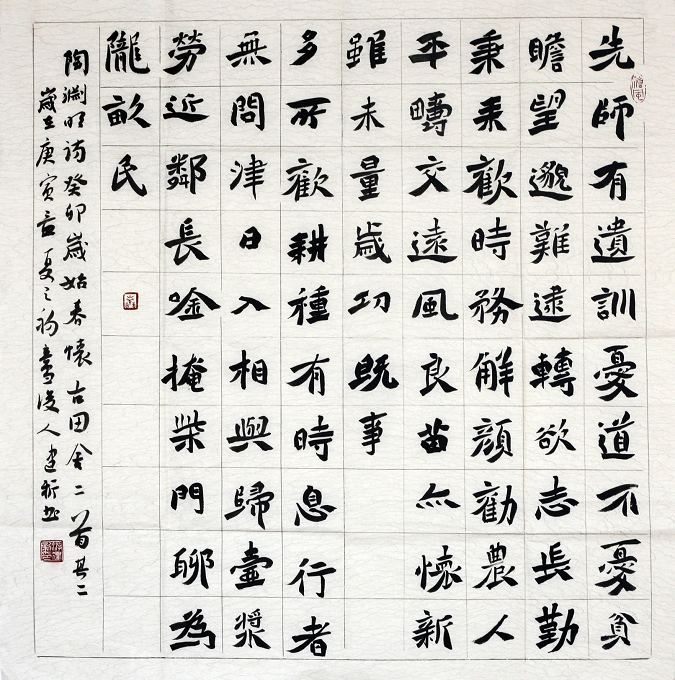 先師有遺訓憂道不憂貧
瞻望邈難逮轉欲志長勤
秉耒歡時務解顏勸農人
平疇交遠風良苗亦懷新
雖未量歲功既事
多所歡耕種有時息行者
無問津日入相與歸壺漿
勞近鄰長唫掩柴門聊為
隴畝民
陶淵明詩癸卯歲始春懷古田舍二首其二
歲在庚寅夏之初人